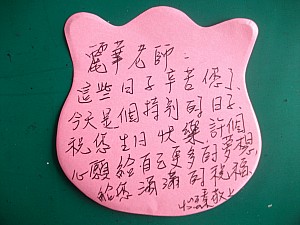 麗華老師：
這些日子辛苦您了、
今天是個特別的日子、
祝您生日快樂、許個
心願給自己更多的夢想，
給您滿滿的祝福、
敬上